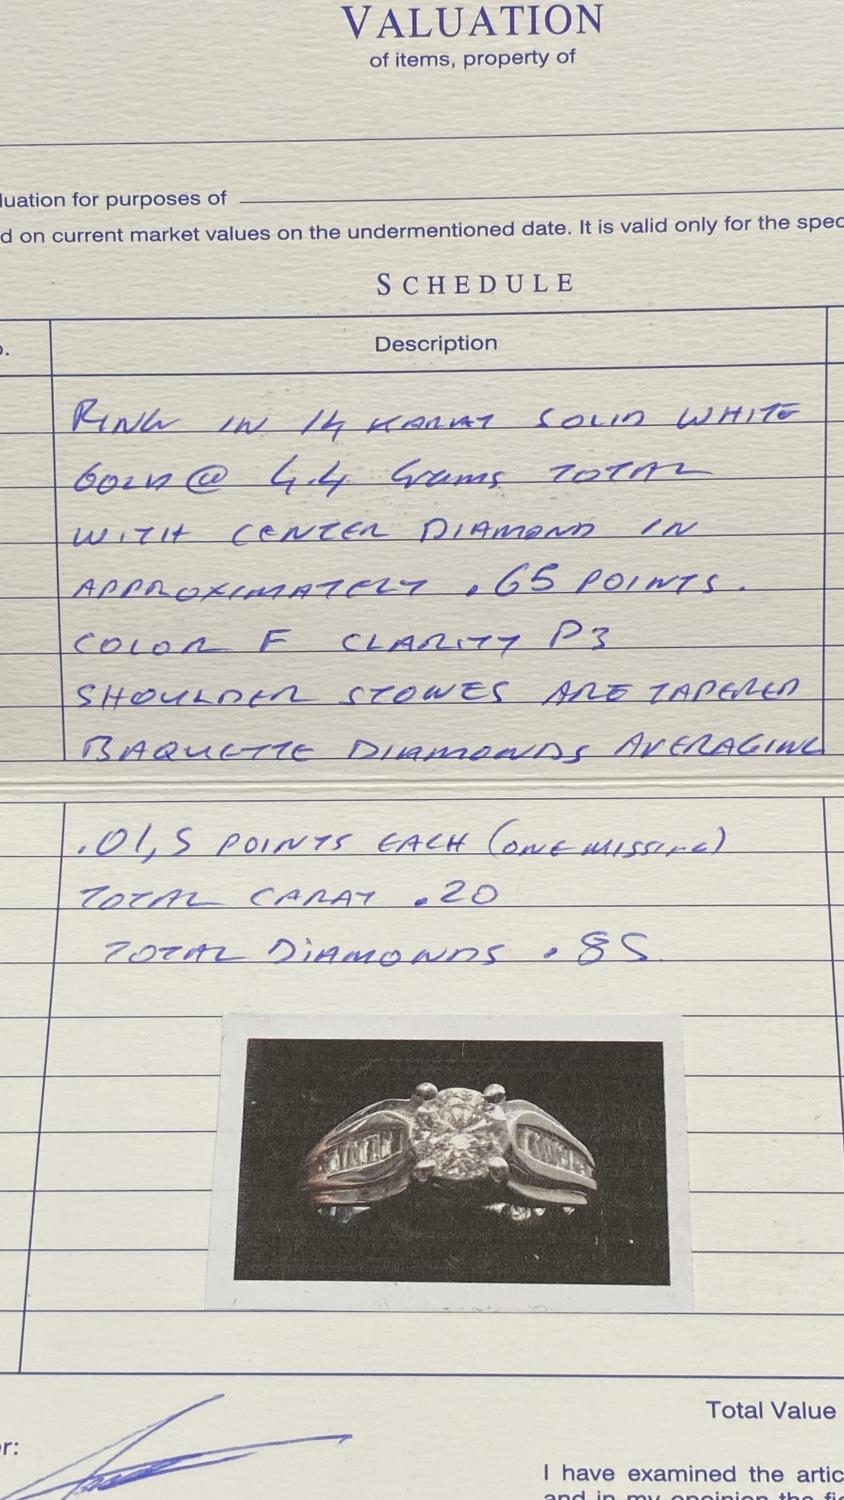 VALUATION
of items, property of
luation for purposes of
d on current market values on the undermentioned date. It is valid only for the spec
SCHEDULE
o.
Description
RING IN 14 KARAT SOLID WHITE
GOLD @ 4.4 Grams TOTAL
WITH CENTER DIAMOND IN
APPROXIMATELY .65 POINTS.
COLOR F CLARITY P3
SHOULDER STONES ARE TAPERED
BAQUETTE DIAMONDS AVERAGING
.01,5 POINTS EACH (ONE MISSING)
TOTAL CARAT .20
TOTAL DIAMONDS .85
Total Value
er:
I have examined the artic
and in my opinion the fi